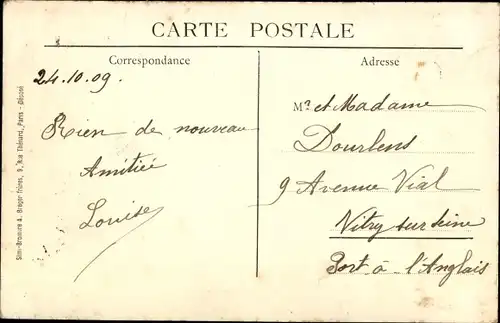 CARTE POSTALE
Correspondance
24.10.09.
Rien de nouveau
Amitiée
Louise
Adresse
Mr et Madame
Dourlens
9 Avenue Vial
Vitry sur Seine
Port à l'Anglais
Simi-Bromure A. Breger frères, 9, Rue Thénard, Paris - Déposé